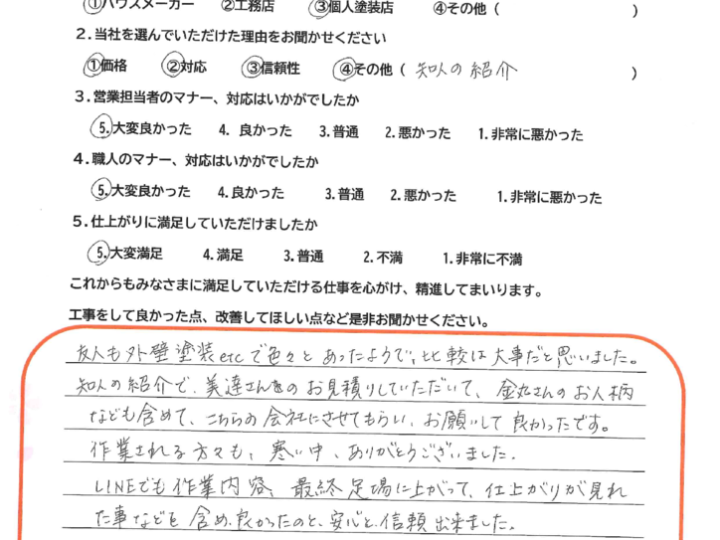 ①ハウスメーカー ②工務店 ③個人塗装店 ④その他 ( )
2.当社を選んでいただけた理由をお聞かせください
①価格 ②対応 ③信頼性 ④その他 ( 知人の紹介 )
3.営業担当者のマナー、対応はいかがでしたか
5.大変良かった 4. 良かった 3.普通 2.悪かった 1.非常に悪かった
4.職人のマナー、対応はいかがでしたか
5.大変良かった 4.良かった 3.普通 2.悪かった 1.非常に悪かった
5.仕上がりに満足していただけましたか
5.大変満足 4.満足 3.普通 2.不満 1.非常に不満
これからもみなさまに満足していただける仕事を心がけ、精進してまいります。
工事をして良かった点、改善してほしい点など是非お聞かせください。
友人も外壁塗装etcで色々とあったようで、比較は大事だと思いました。
知人の紹介で、美達さんのお見積りしていただいて、金丸さんのお人柄
なども含めて、こちらの会社にさせてもらい、お願いして良かったです。
作業される方々も、寒い中、ありがとうございました。
LINEでも作業内容、最終足場に上がって、仕上がりが見れ
た事などを含め、良かったのと、安心と信頼出来ました。